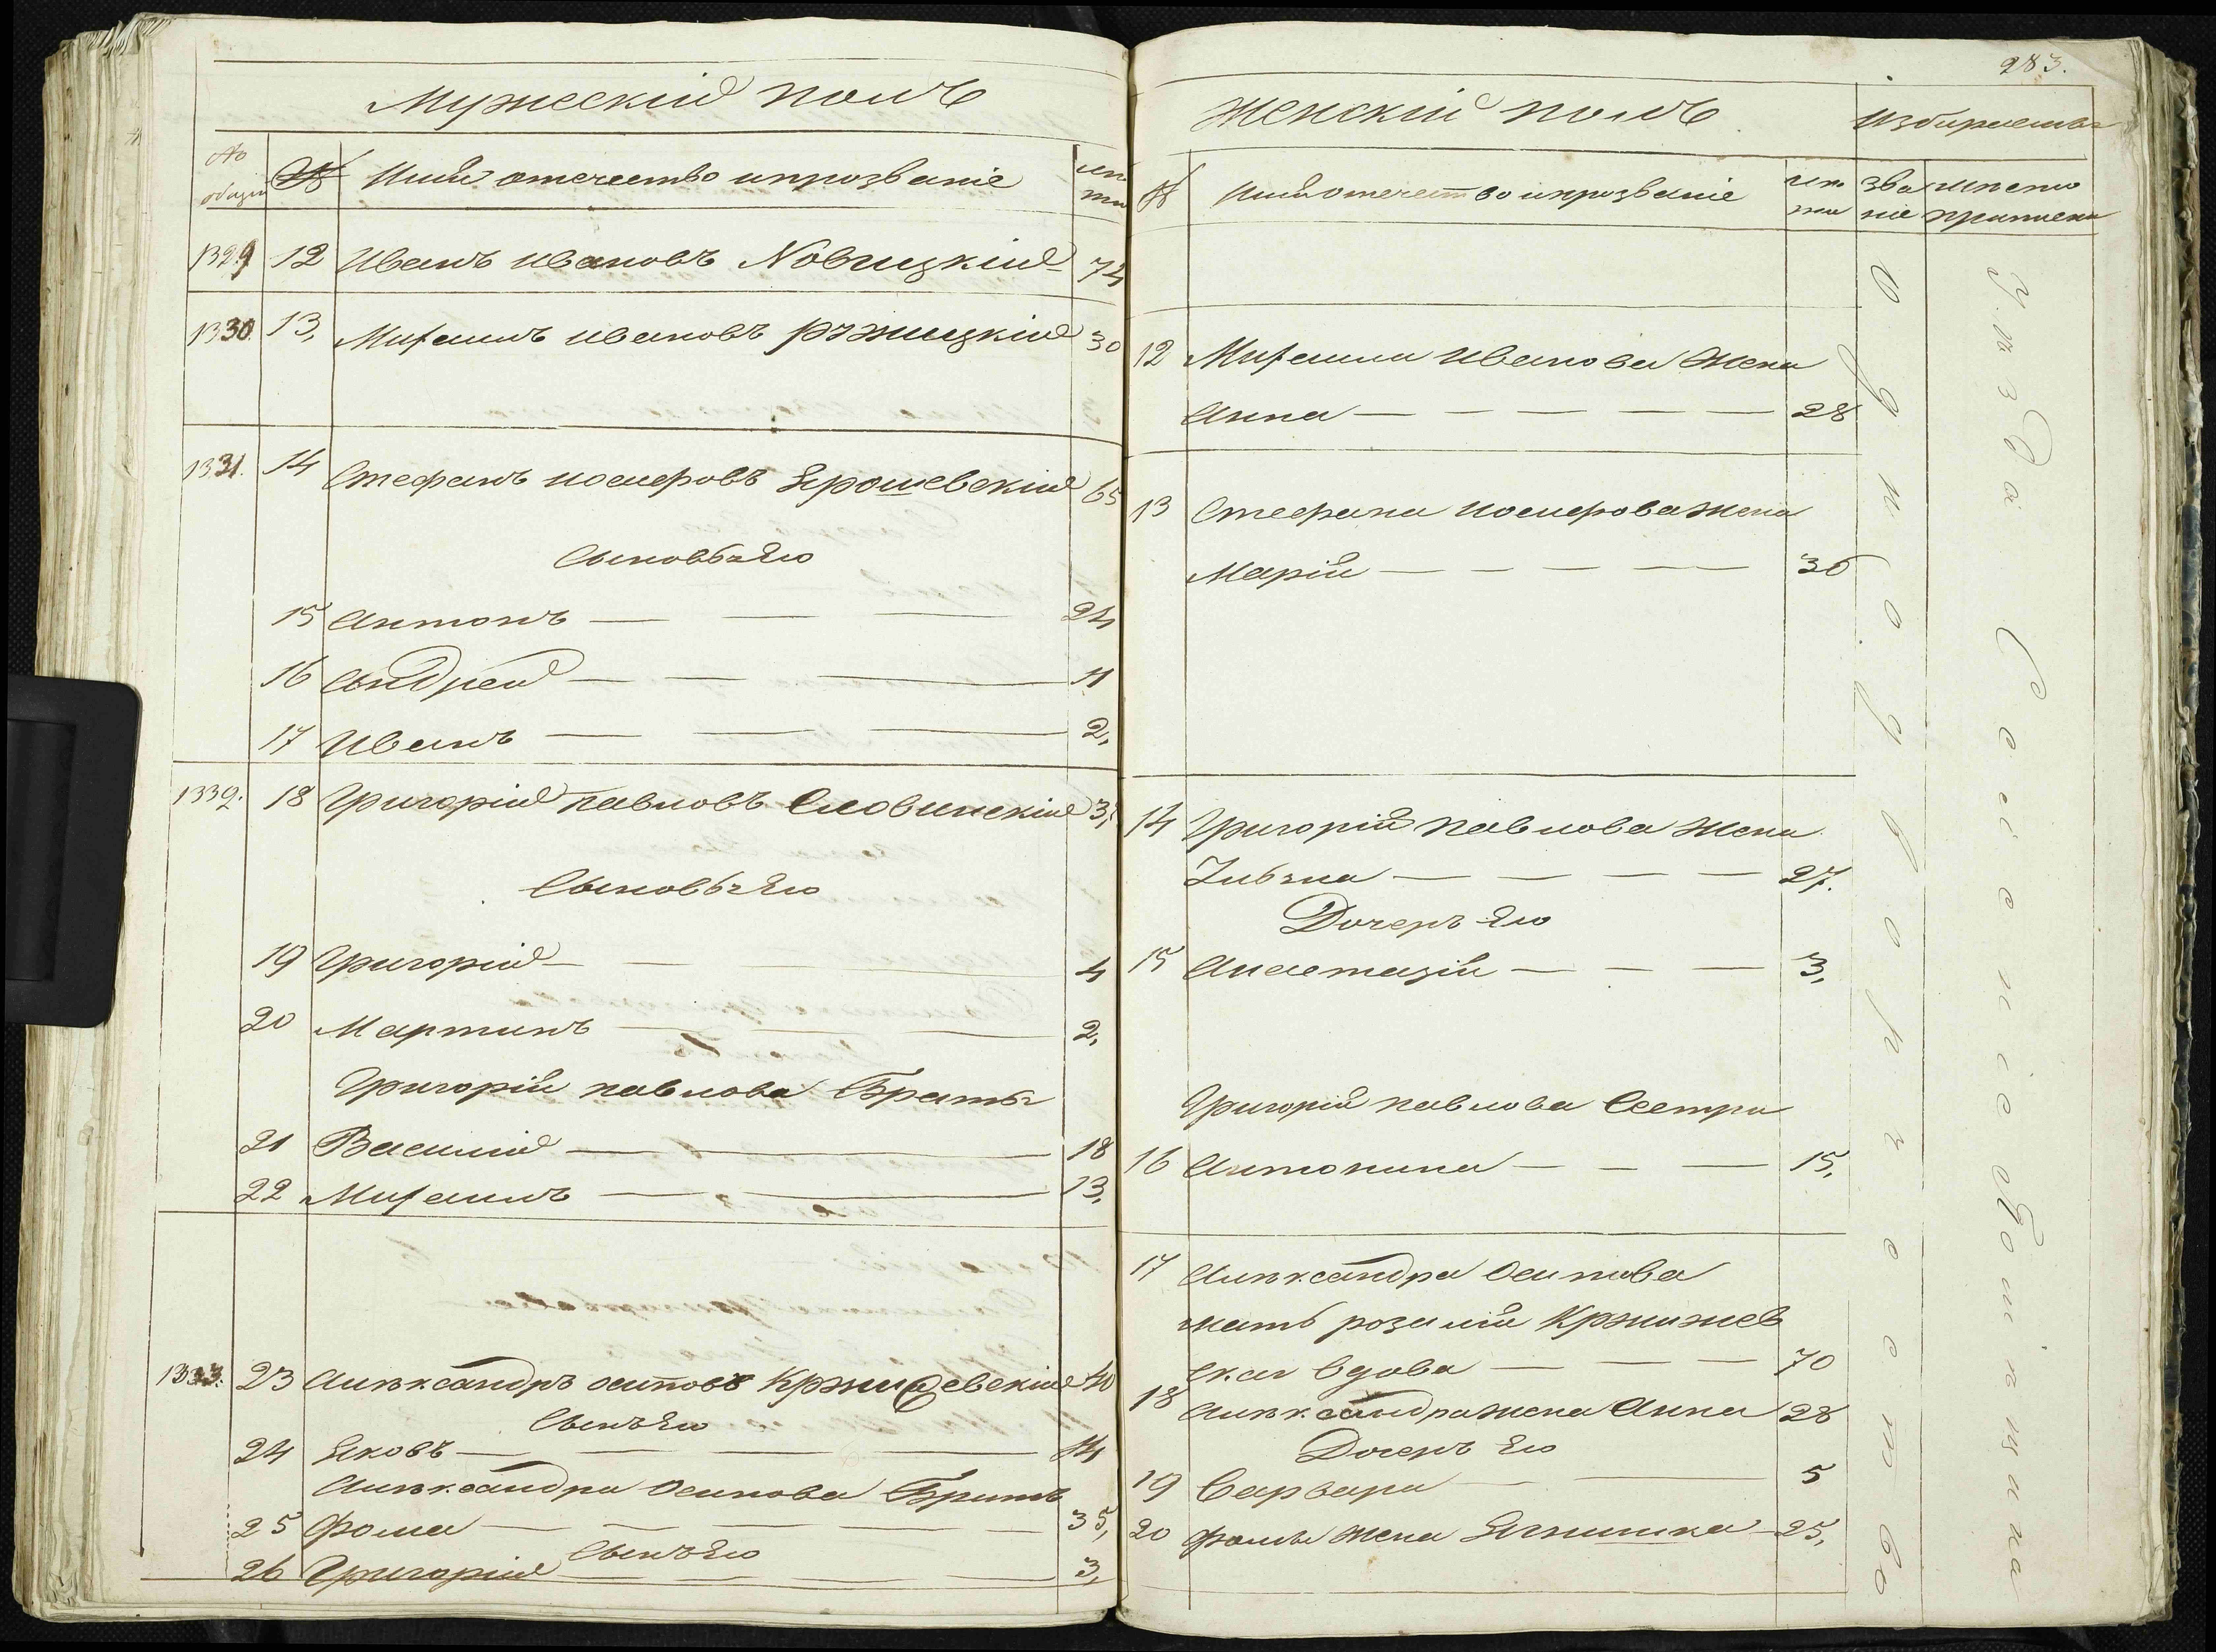 Мужескій полъ
№ общій № Имя отечество и прозваніе лѣта
1329 12 Иванъ Ивановъ Новицкій 74
1330. 13, Михаилъ Ивановъ Ржицкій 30
1331. 14 Стефанъ Іосифовъ Ярошевскій 65
Сыновья Его
15 Антонъ 24
16 Андрей 11
17 Иванъ 2,
1332. 18 Григорій Павловъ Словинскій
Сыновья Его
19 Григорій 4
20 Мартинъ 2,
Григорія Павлова Братья
21 Василій 18
22 Михаилъ 13,
1333. 23 Александръ Осиповъ 40
Сынъ Его
24 Яковъ 14
Александра Осипова Братъ
25 Фома 35,
Сынъ Его
26 Григорій 3,
283.
Женскій полъ Избираетъ
№ Имя отечество и прозваніе лѣта званіе мѣсто приписки
12 Михаила Иванова Жена
Анна 28
13 Стефана Іосифова жена
Марія 36
14 Григорія Павлова Жена
27.
Дочерь Его
15 Анастазія 3,
Григорія Павлова Сестра
16 Антонина 15,
17 Александра Осипова
мать Розалія Кржижев
ская вдова 70
18 Александра жена Анна 28
Дочерь Его
19 Варвара 5
20 Фомы Жена Агнишка 25,
однодворческое
уѣзда